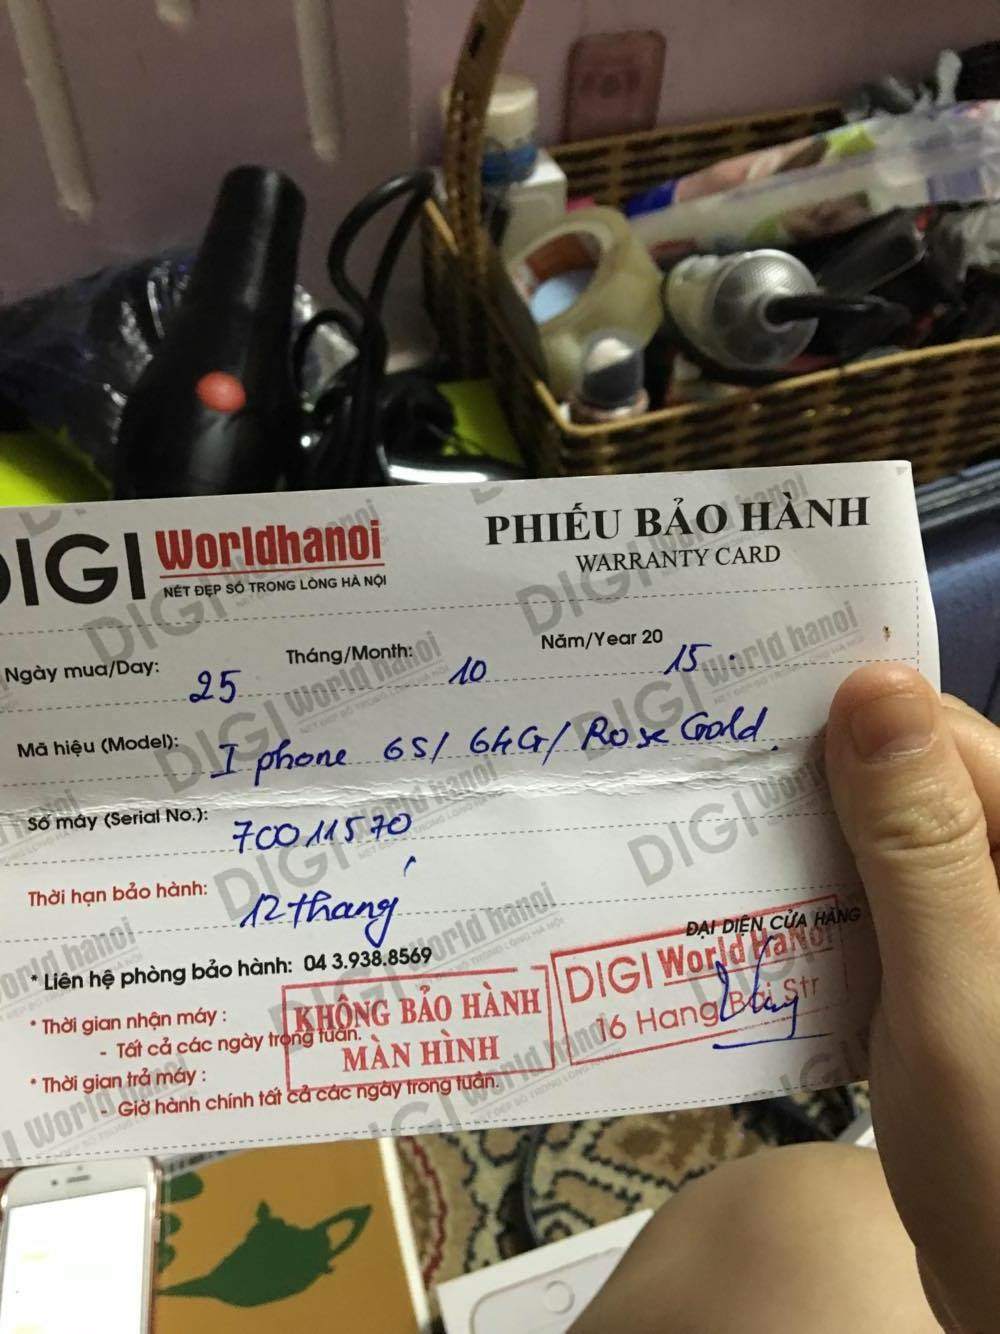 DIGI Worldhanoi
NÉT ĐẸP SỐ TRONG LÒNG HÀ NỘI
PHIẾU BẢO HÀNH
WARRANTY CARD
Ngày mua/Day: 25 Tháng/Month: 10 Năm/Year 20 15.
Mã hiệu (Model): I phone 6S/ 64G/ Rose Gold.
Số máy (Serial No.): 70011570
Thời hạn bảo hành: 12 tháng
* Liên hệ phòng bảo hành: 04 3.938.8569
ĐẠI DIỆN CỬA HÀNG
* Thời gian nhận máy :
- Tất cả các ngày trong tuần.
* Thời gian trả máy :
- Giờ hành chính tất cả các ngày trong tuần.
KHÔNG BẢO HÀNH
MÀN HÌNH
DIGI World HaNoi
16 Hang Bai Str